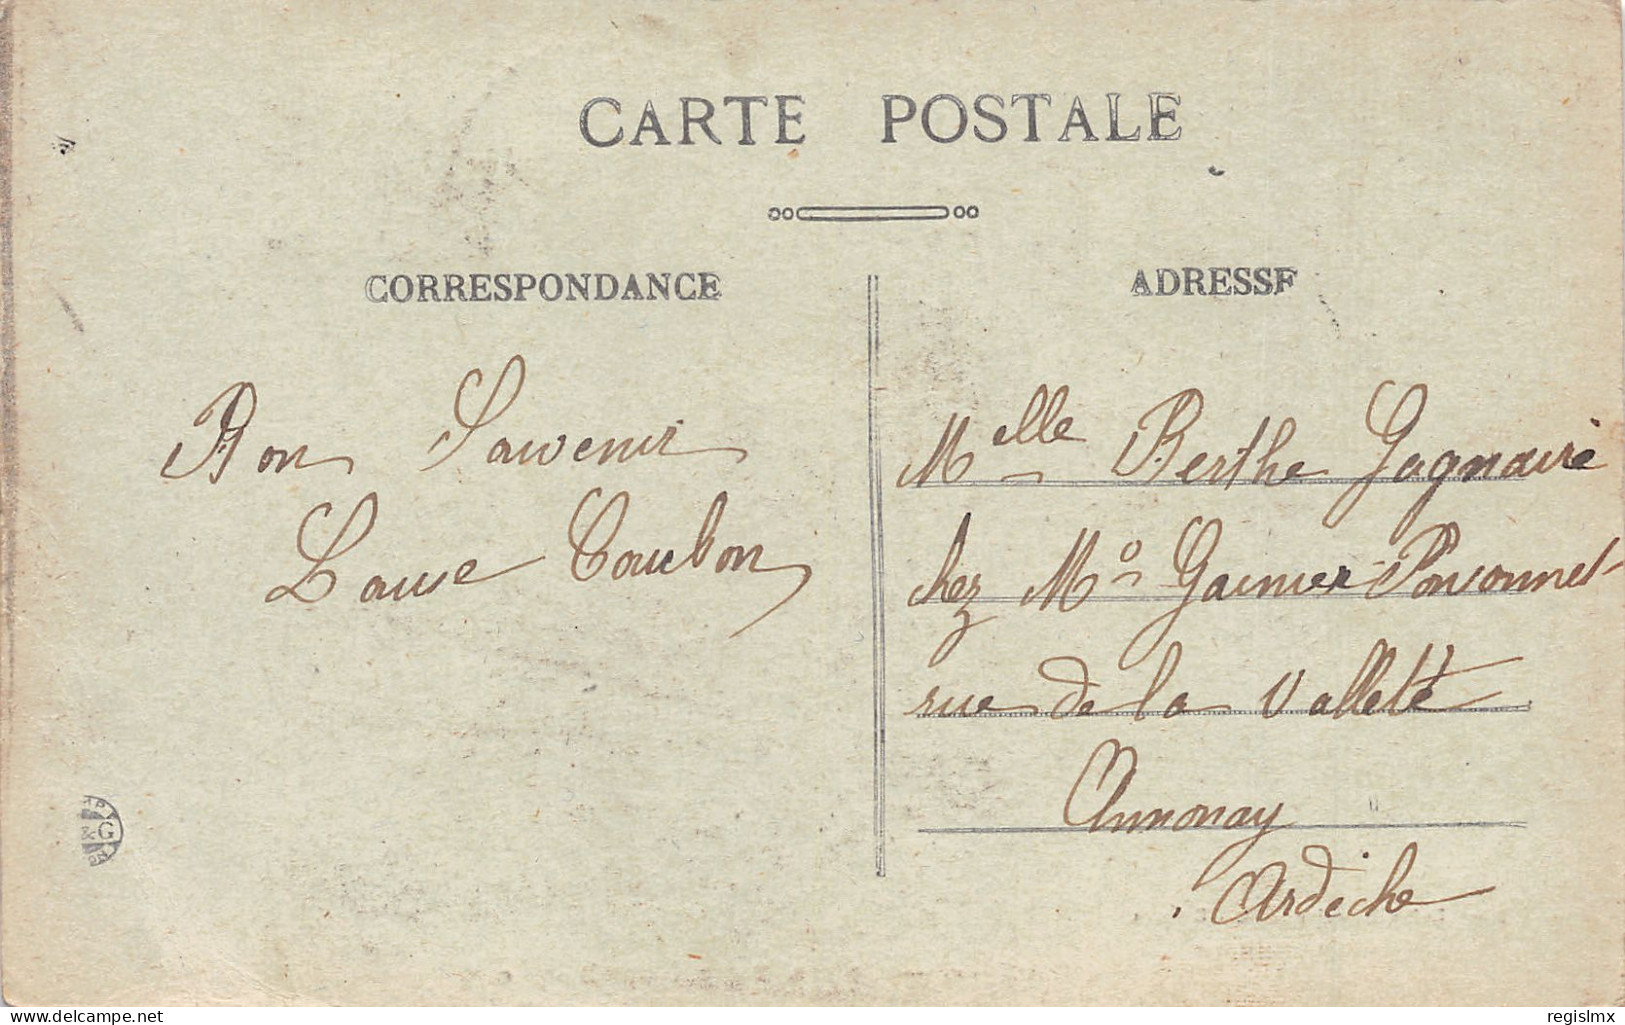 CARTE POSTALE
CORRESPONDANCE
ADRESSE
Bon Souvenir
Louise Courbon
Melle Berthe Gagnaire
chez Mo Garnier
rue de la Valleté
Annonay
Ardèche
delcampe.net
regislmx